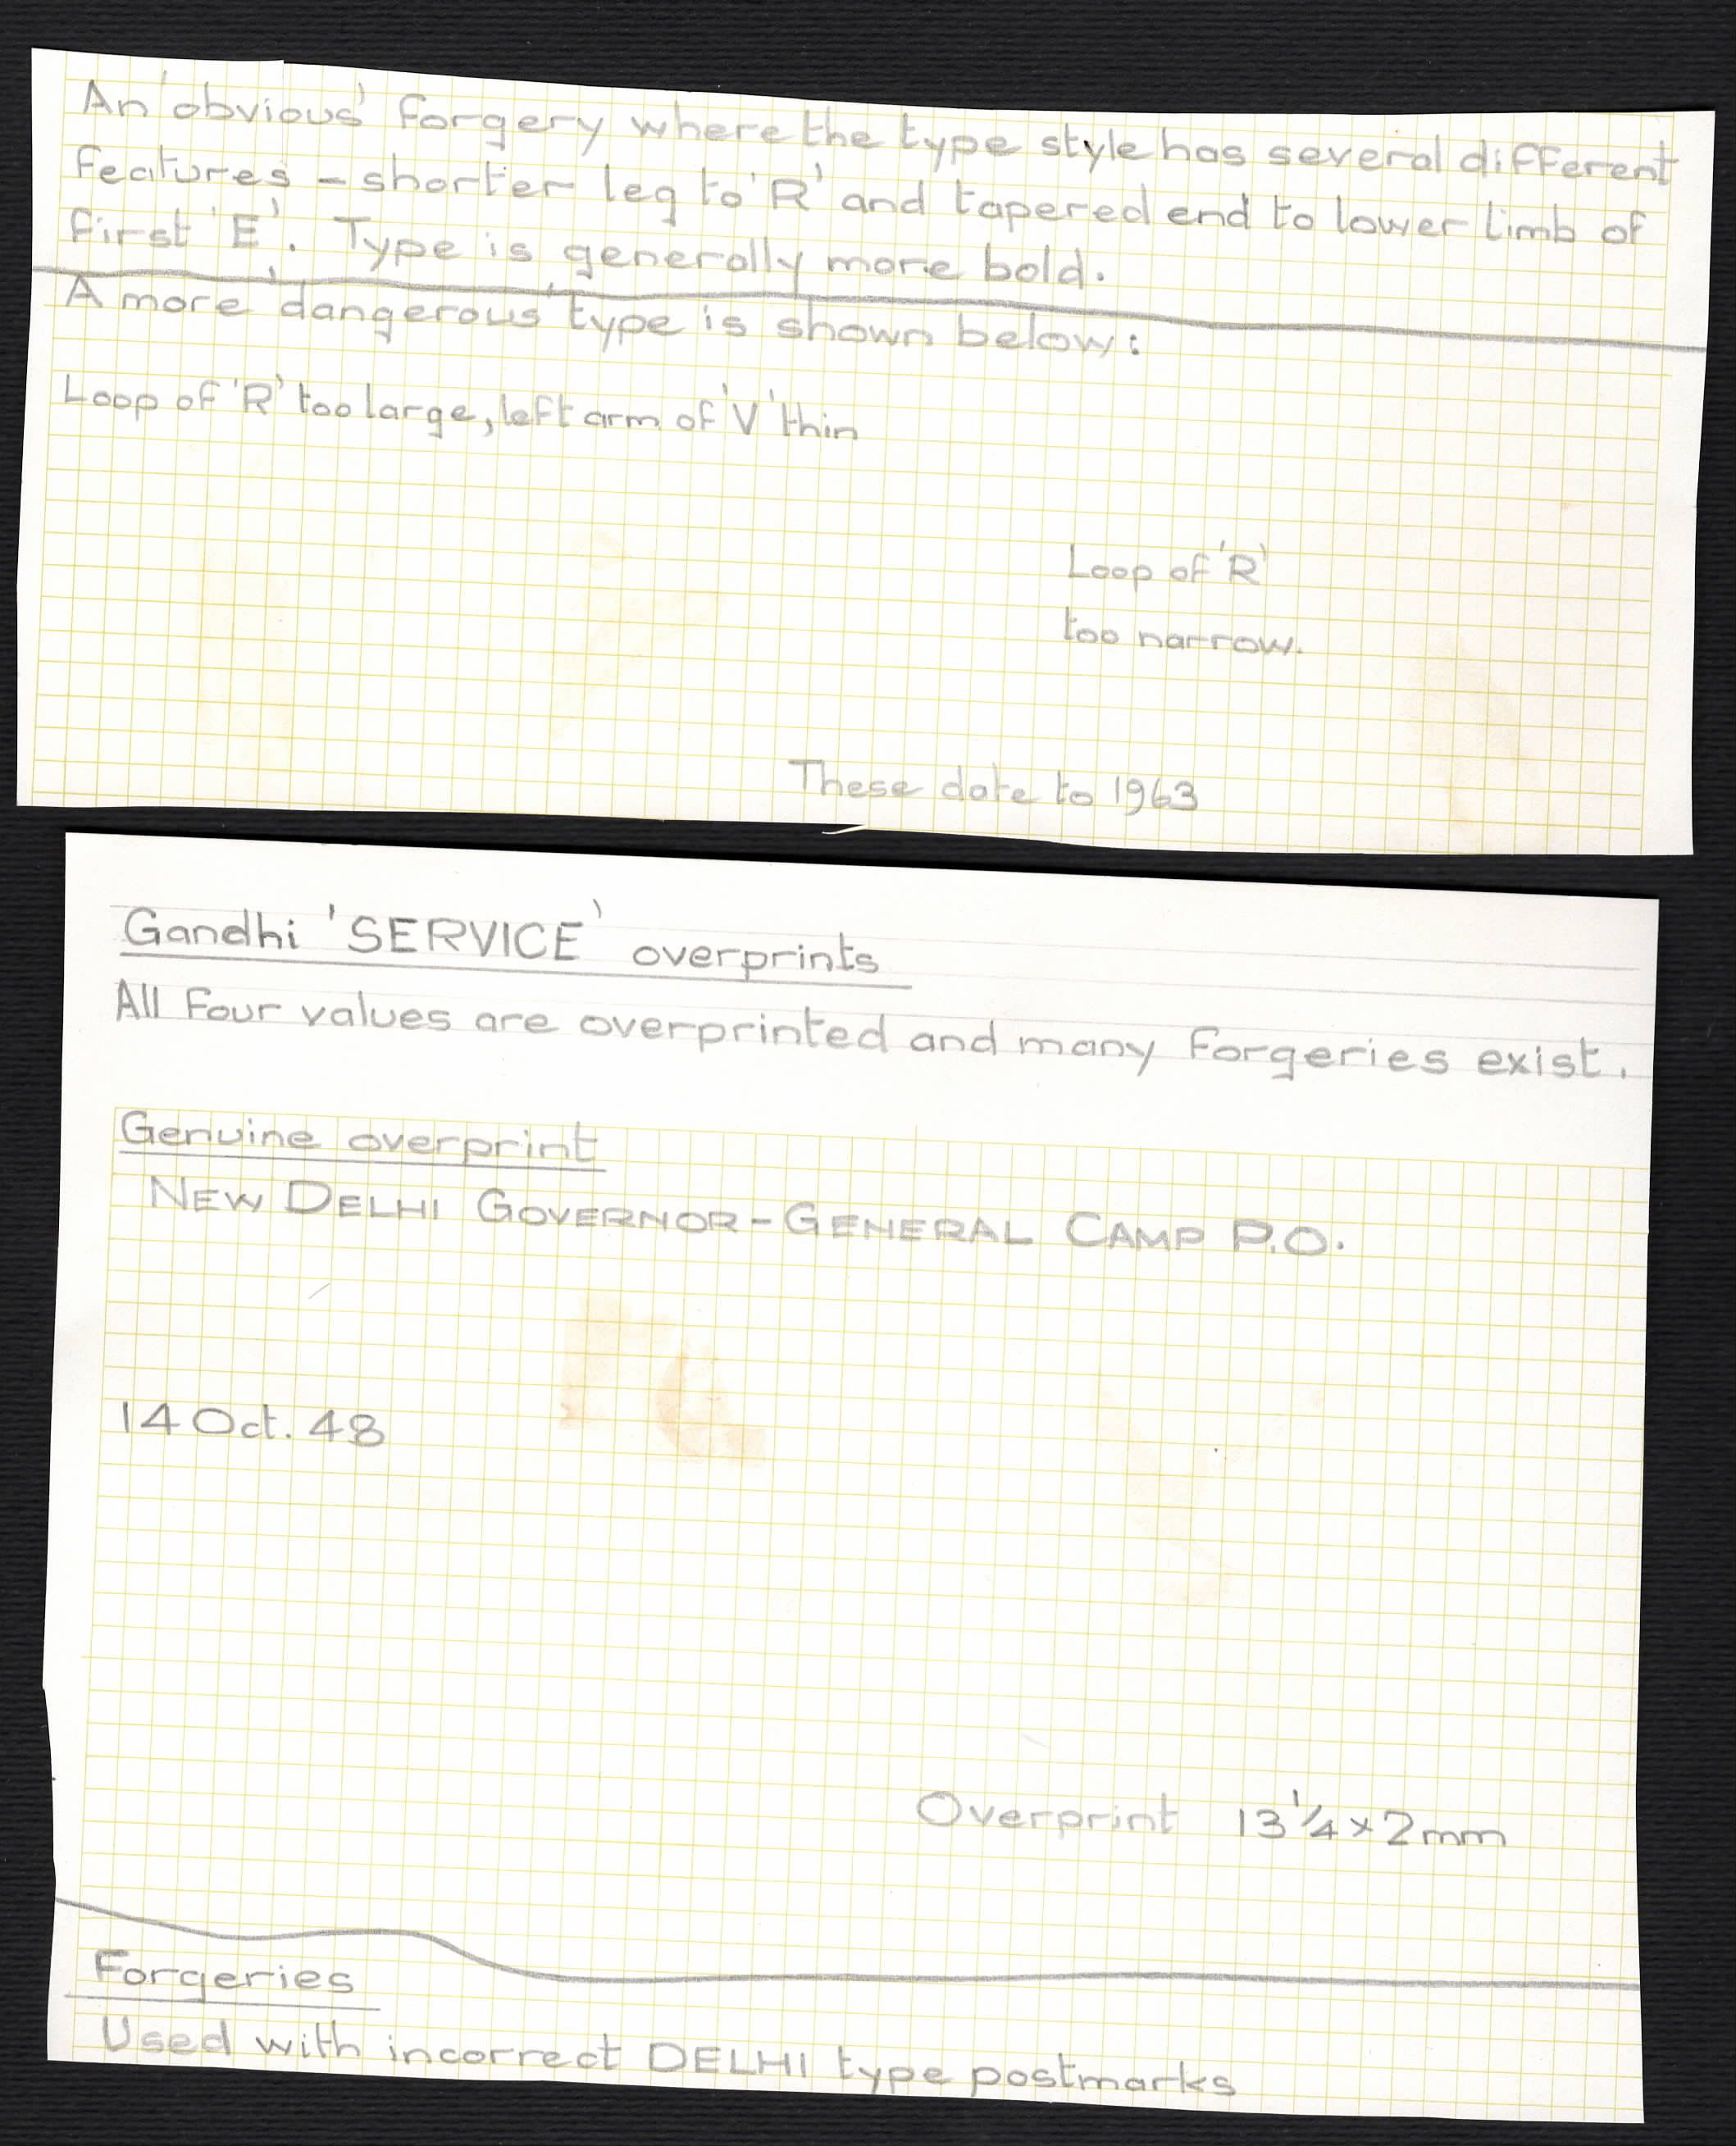 An 'obvious' forgery where the type style has several different
features - shorter leg to 'R' and tapered end to lower limb of
first 'E'. Type is generally more bold.
A more 'dangerous' type is shown below:
Loop of 'R' too large, left arm of 'V' thin
Loop of 'R'
too narrow.
These date to 1963
Gandhi 'SERVICE' overprints
All four values are overprinted and many forgeries exist.
Genuine overprint
NEW DELHI GOVERNOR-GENERAL CAMP P.O.
14 Oct. 48
Overprint 13 1/4 x 2mm
Forgeries
Used with incorrect DELHI type postmarks